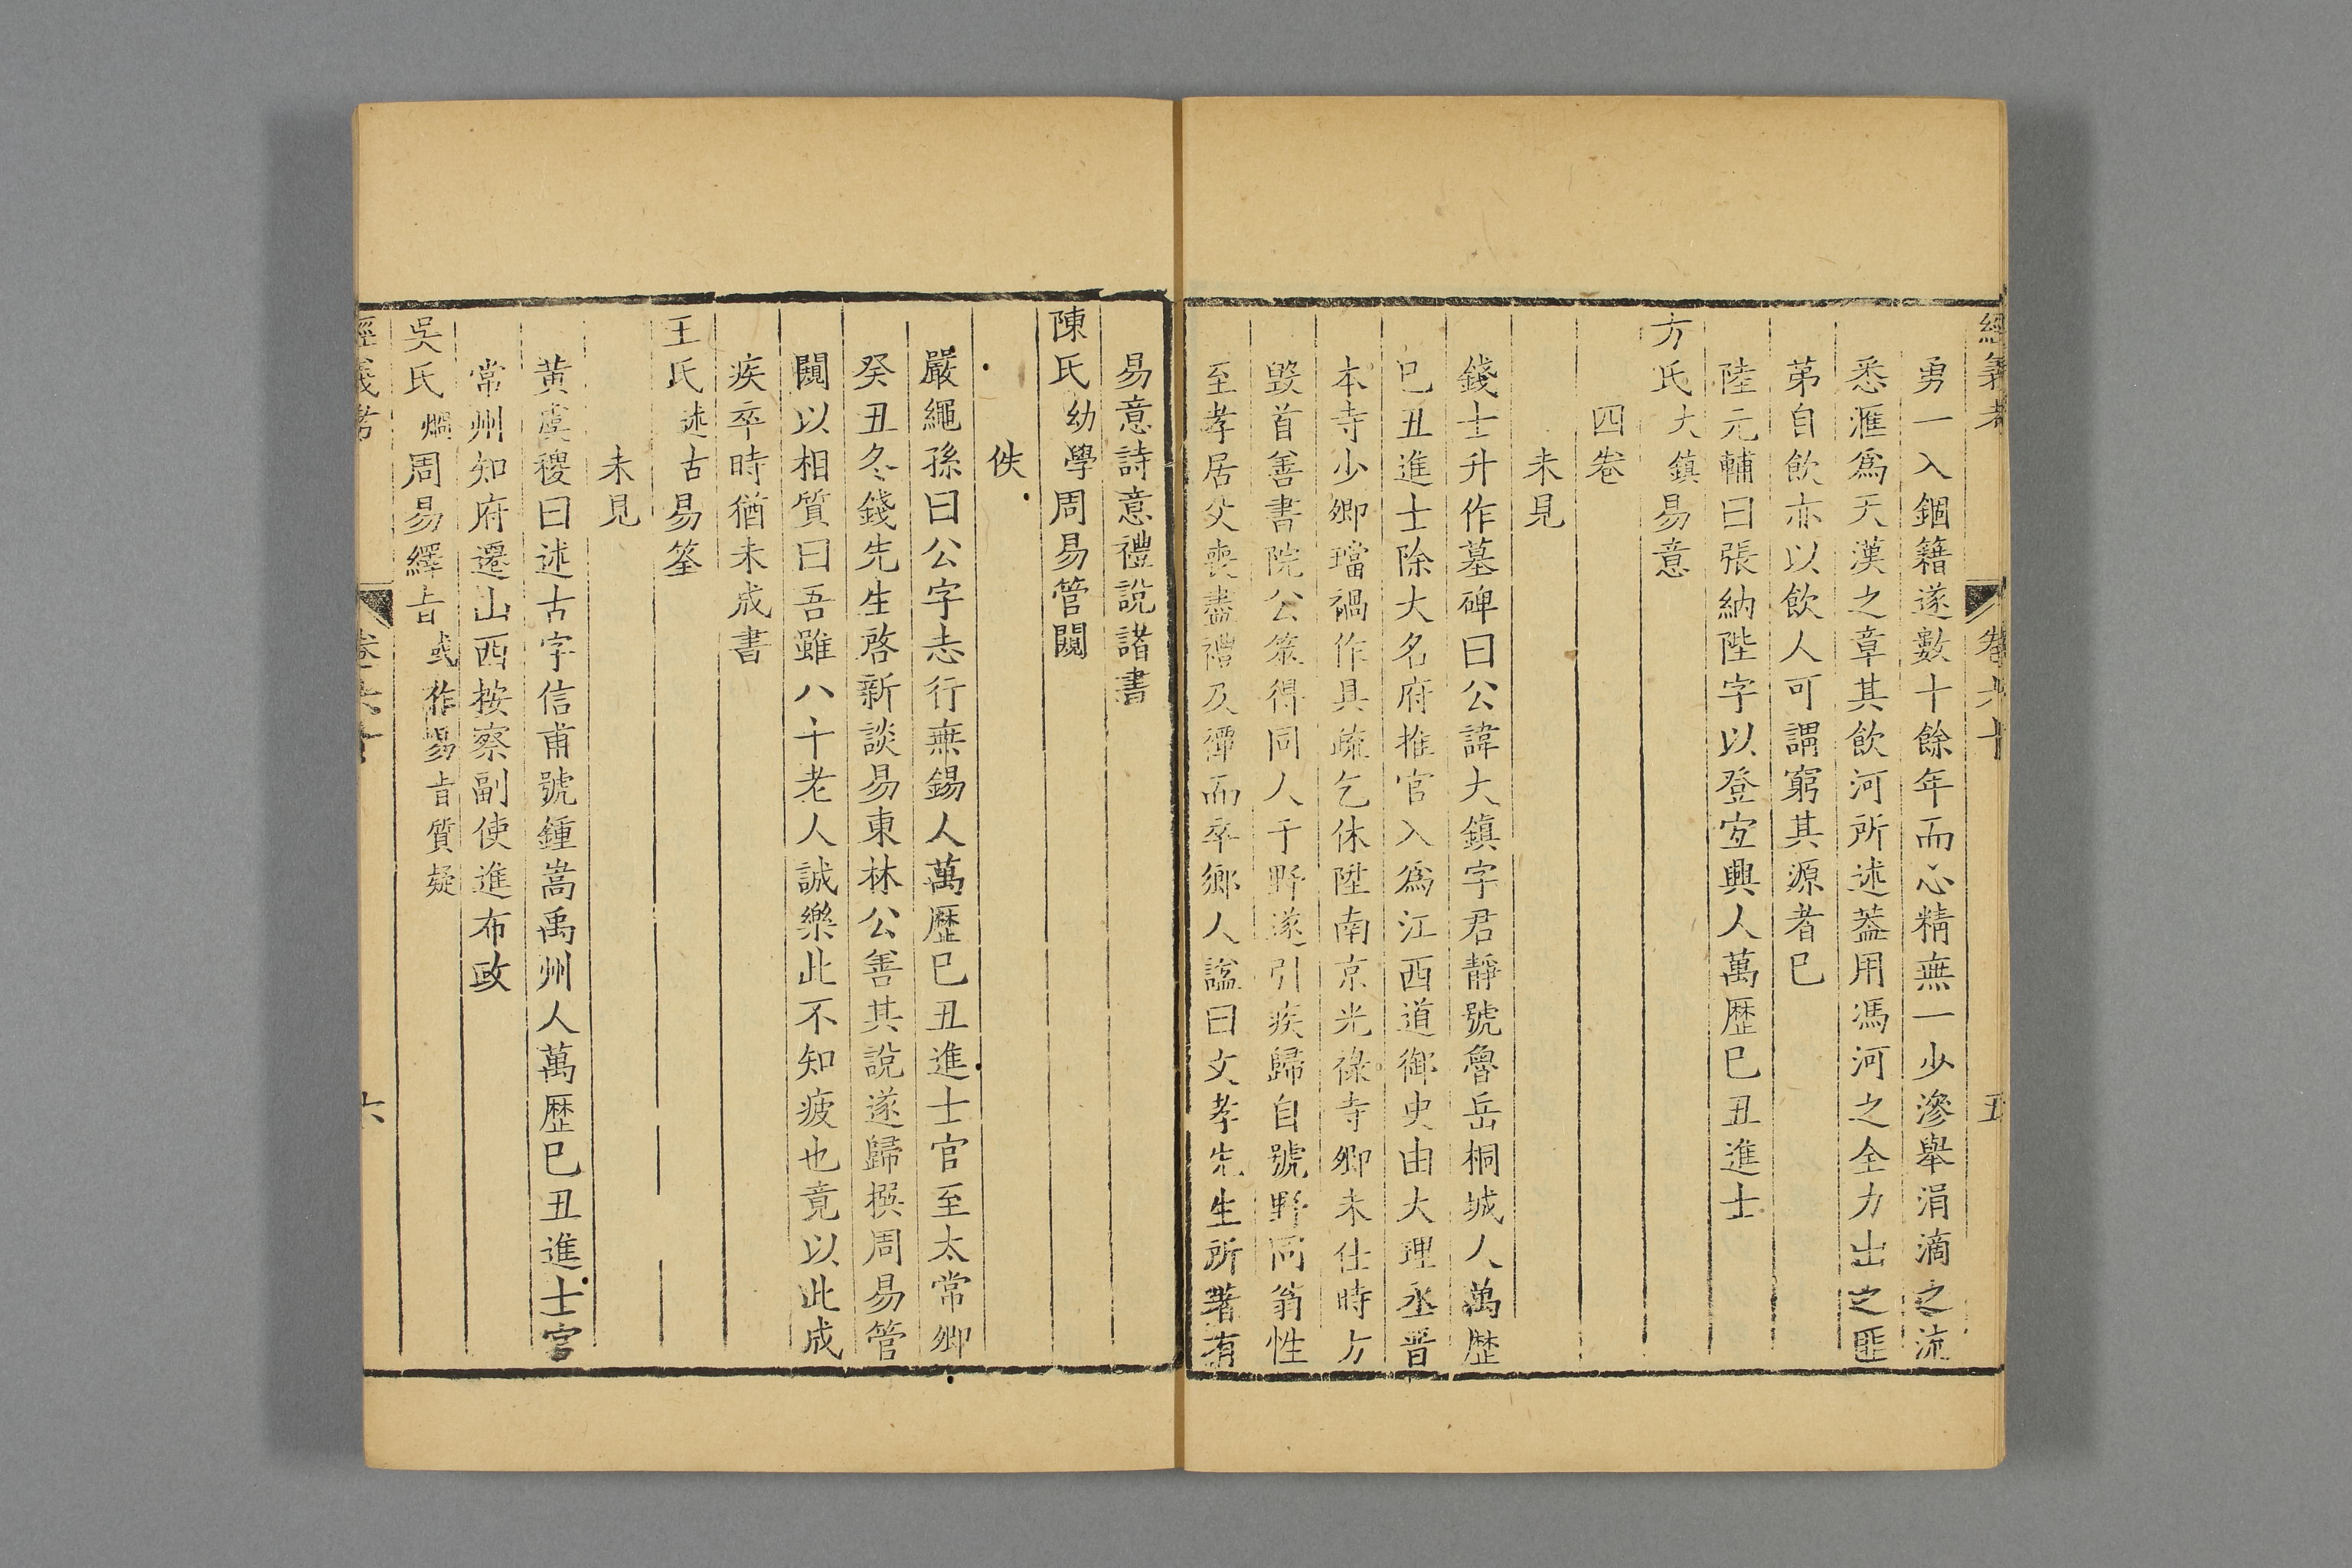 經義考 卷六十 五
勇一入錮籍遂數十餘年而心精無一少滲舉涓滴之流
悉滙爲天漢之章其飲河所述葢用馮河之全力出之匪
苐自飲亦以飲人可謂窮其源者巳
陸元輔曰張納陛字以登宐興人萬歴巳丑進士
方氏大鎮易意
四卷
未見
錢士升作墓碑曰公諱大鎮字君靜號魯岳桐城人萬歴
巳丑進士除大名府推官入爲江西道御史由大理丞晋
本寺少卿璫禍作具疏乞休陞南京光祿寺卿未仕時方
毀首善書院公筮得同人于野遂引疾歸自號野同翁性
至孝居父喪盡禮及禫而卒鄉人諡曰文孝先生所著有
易意詩意禮說諸書
陳氏幼學周易管闚
佚
嚴繩孫曰公字志行無錫人萬歴巳丑進士官至太常卿
癸丑冬錢先生啓新談易東林公善其說遂歸撰周易管
闚以相質曰吾雖八十老人誠樂此不知疲也竟以此成
疾卒時猶未成書
王氏述古易筌
未見
黃虞稷曰述古字信甫號鍾嵩禹州人萬歴巳丑進士官
常州知府遷山西按察副使進布政
吳氏炯周易繹旨或作易旨質疑
經義考 卷六十 六